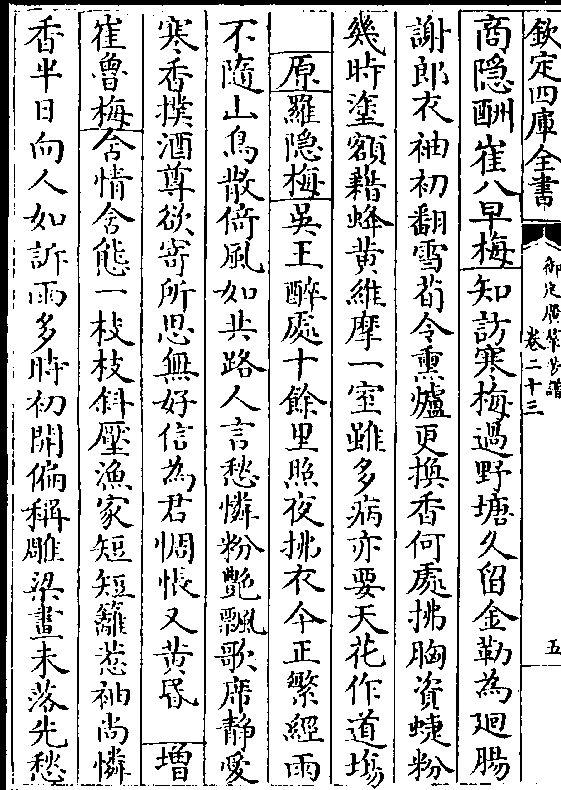 欽定四庫全書
御定廣羣芳譜
卷二十三
五
商隱酬崔八早梅知訪寒梅過野塘久留金勒為廻腸
謝郎衣袖初翻雪荀令熏爐更換香何處拂胸資蜨粉
幾時塗額藉蜂黄維摩一室雖多病亦要天花作道塲
原羅隱梅吳王醉處十餘里照夜拂衣今正繁經雨
不隨山鳥散倚風如共路人言愁憐粉艷飄歌席静愛
寒香撲酒尊欲寄所思無好信為君惆悵又黄昏 增
崔魯梅含情含態一枝枝斜壓漁家短短籬惹袖尚憐
香半日向人如訴雨多時初開偏稱雕梁畫未落先愁